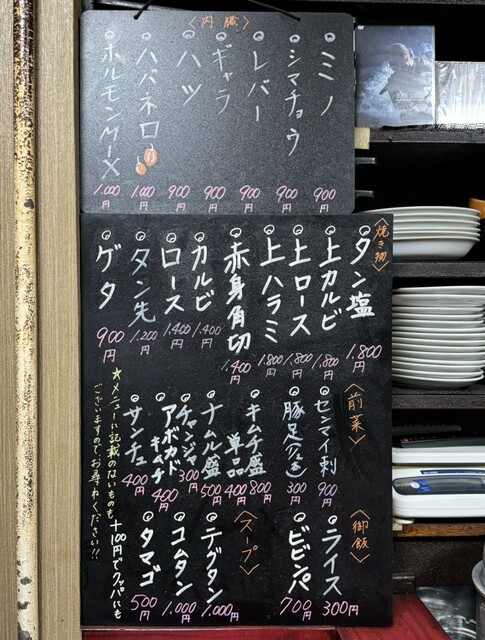 〈内臓〉
ミノ 900円
シマチョウ 900円
レバー 900円
ギャラ 900円
ハツ 900円
ハバネロ 1,000円
ホルモンMIX 1,000円
〈焼き物〉
タン塩 1,800円
上カルビ 1,800円
上ロース 1,800円
上ハラミ 1,800円
赤身角切 1,400円
カルビ 1,400円
ロース 1,400円
タン先 1,200円
ゲタ 900円
〈前菜〉
センマイ刺 900円
豚足 300円
キムチ盛 800円
単品 400円
ナムル盛 500円
チャンジャ 300円
アボカドキムチ 400円
サンチュ 400円
〈御飯〉
ライス 300円
ビビンパ 700円
〈スープ〉
テグタン 1,000円
コムタン 1,000円
タマゴ 500円
+100円でクッパにも
☆メニューに記載のないものも
ございますので、お尋ねください!!